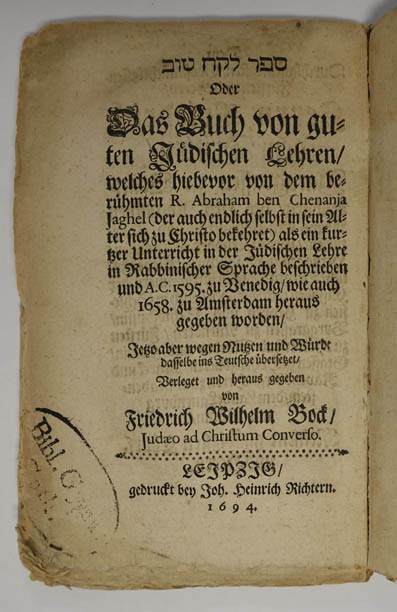 ספר לקח טוב
Oder
Das Buch von gu-
ten Jüdischen Lehren/
welches hiebevor von dem be-
rühmten R. Abraham ben Chenanja
Jaghel (der auch endlich selbst in sein Al-
ter sich zu Christo bekehret) als ein kur-
tzer Unterricht in der Jüdischen Lehre
in Rabbinischer Sprache beschrieben
und A.C. 1595. zu Venedig/ wie auch
1658. zu Amsterdam heraus
gegeben worden/
Jetzo aber wegen Nutzen und Würde
dasselbe ins Teutsche übersetzet/
Verleget und heraus gegeben
von
Friedrich Wilhelm Bock/
Judæo ad Christum Converso.
LEIPZIG/
gedruckt bey Joh. Heinrich Richtern.
1694.
Bibl.